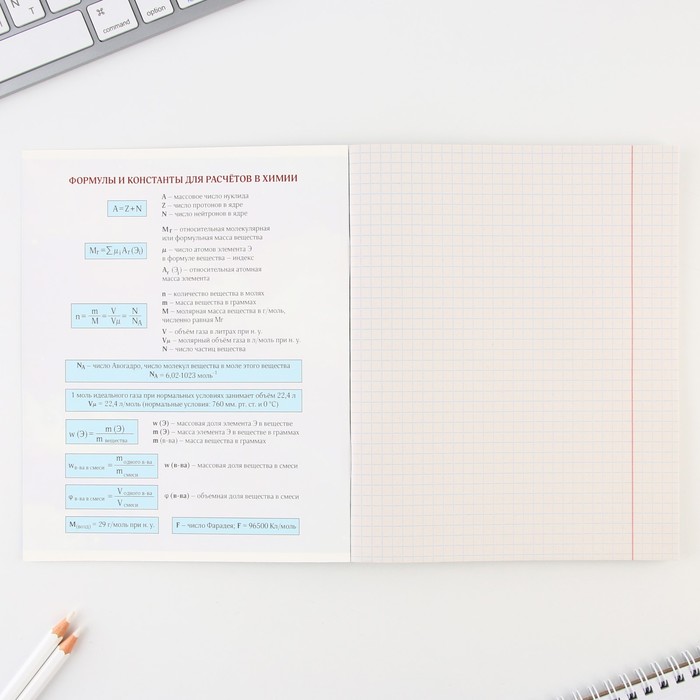 N
T
⌘
command
option
ФОРМУЛЫ И КОНСТАНТЫ ДЛЯ РАСЧЁТОВ В ХИМИИ
A=Z+N
A – массовое число нуклида
Z – число протонов в ядре
N – число нейтронов в ядре
Mr=∑μiAr(Эi)
Mr – относительная молекулярная
или формульная масса вещества
μ – число атомов элемента Э
в формуле вещества – индекс
Ar (Эi) – относительная атомная
масса элемента
n = m/M = V/Vμ = N/NA
n – количество вещества в молях
m – масса вещества в граммах
M – молярная масса вещества в г/моль,
численно равная Mr
V – объём газа в литрах при н. у.
Vμ – молярный объём газа в л/моль при н. у.
N – число частиц вещества
NA – число Авогадро, число молекул вещества в моле этого вещества
NA = 6,02·1023 моль⁻¹
1 моль идеального газа при нормальных условиях занимает объём 22,4 л
Vμ = 22,4 л/моль (нормальные условия: 760 мм. рт. ст. и 0 °C)
w (Э) = m (Э) / m вещества
w (Э) – массовая доля элемента Э в веществе
m (Э) – масса элемента Э в веществе в граммах
m (в-ва) – масса вещества в граммах
w в-ва в смеси = m одного в-ва / m смеси
w (в-ва) – массовая доля вещества в смеси
φ в-ва в смеси = V одного в-ва / V смеси
φ (в-ва) – объемная доля вещества в смеси
M(возд) = 29 г/моль при н. у.
F – число Фарадея; F = 96500 Кл/моль